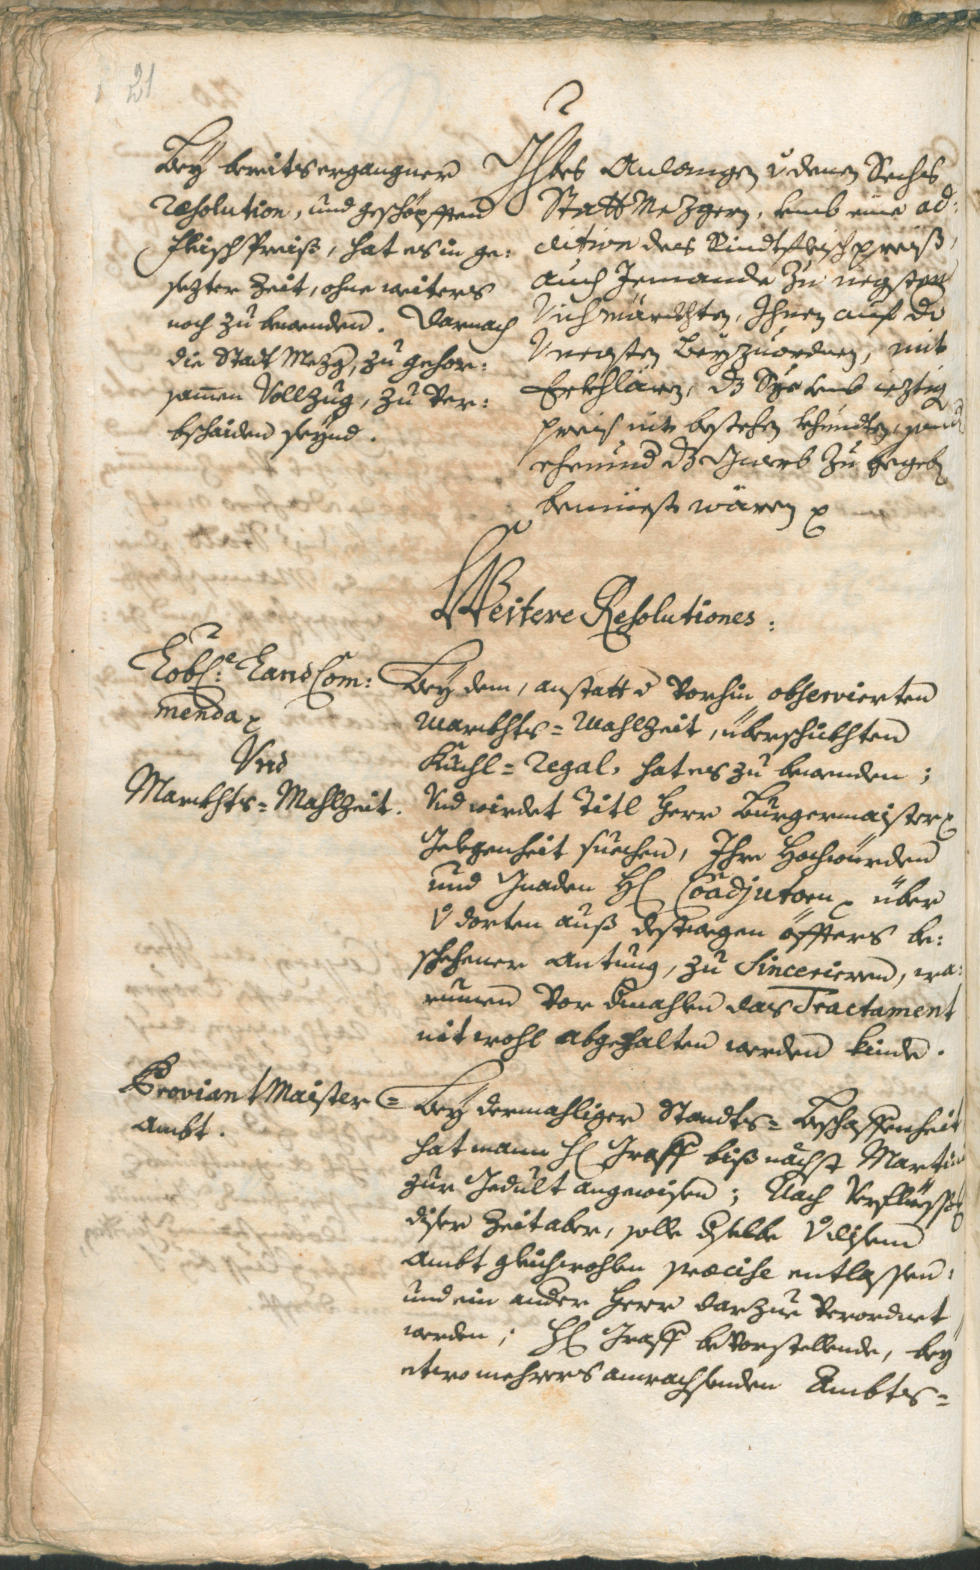 21
Bey bereits ergangner
Resolution, und geschöpfften
Fleisch Preiß, hat es in ge:
sezter Zeit, ohne weiters
noch zu bewenden. Darnach
die Statt Mezg, zu gehor:
samen Vollzug, zu ver:
bschaiden seynd.
Anlangen v denen Sechs
Statt Mezgern, umb eine ad:
dition des Rindtfleisch preiß,
auch Jemande zu negsten
Vich märckhten, Ihnen auf
beyzuordnen, mit
Erkhlären, dz Sye umb iezig
preiß nit bestehen khundten,
ehe und dz Gwerb zu begeben
bemüest wären
Weitere Resolutiones:
Lobl:e Land Com:
menda
Vnd
Marckhts=Mahlzeit.
Bey dem, anstatt d vorhin observierten
Marckhts=Mahlzeit, überschickhten
Kuchl=Regal, hat es zu bewenden;
Vnd wirdet Titl Herr Burgermaister
Gelegenheit suechen, Ihro Hochwürden
und Gnaden H Coadjutorn über
v dorten auß destwegen öffters be:
schehener Antung, zu Sincerieren, wa:
rumen vor dmahlen das Tractament
nit wohl abgehalten werden kinde.
Proviant Maister=
Ambt.
Bey dermahliger Standts=Beschaffenheit
hat mann H Graff biß nächst Martini
zur Gedult angewisen; Nach Verfliessung
diser Zeit aber, solle dselbe v disem
Ambt gleichwohlen praecise entlassen,
und ein ander Herr darzue verordnet
werden; H Graff bevorstellende, bey
etwo mehrers anwachsenden Ambts=